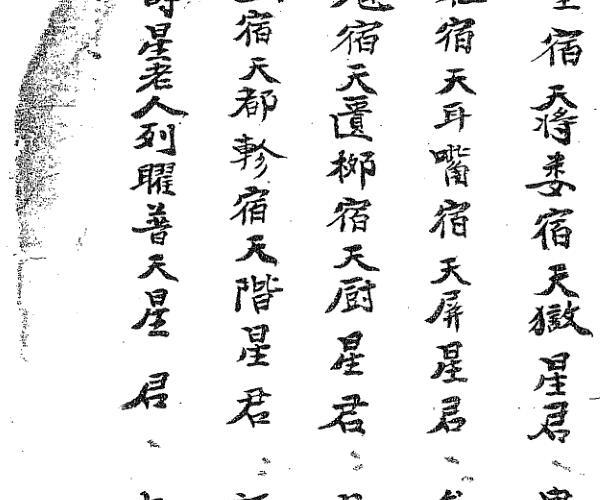 宿天将娄宿天獄星君
宿天耳嘴宿天屏星君
宿天匱柳宿天厨星君
宿天都軫宿天階星君
星老人列曜普天星君